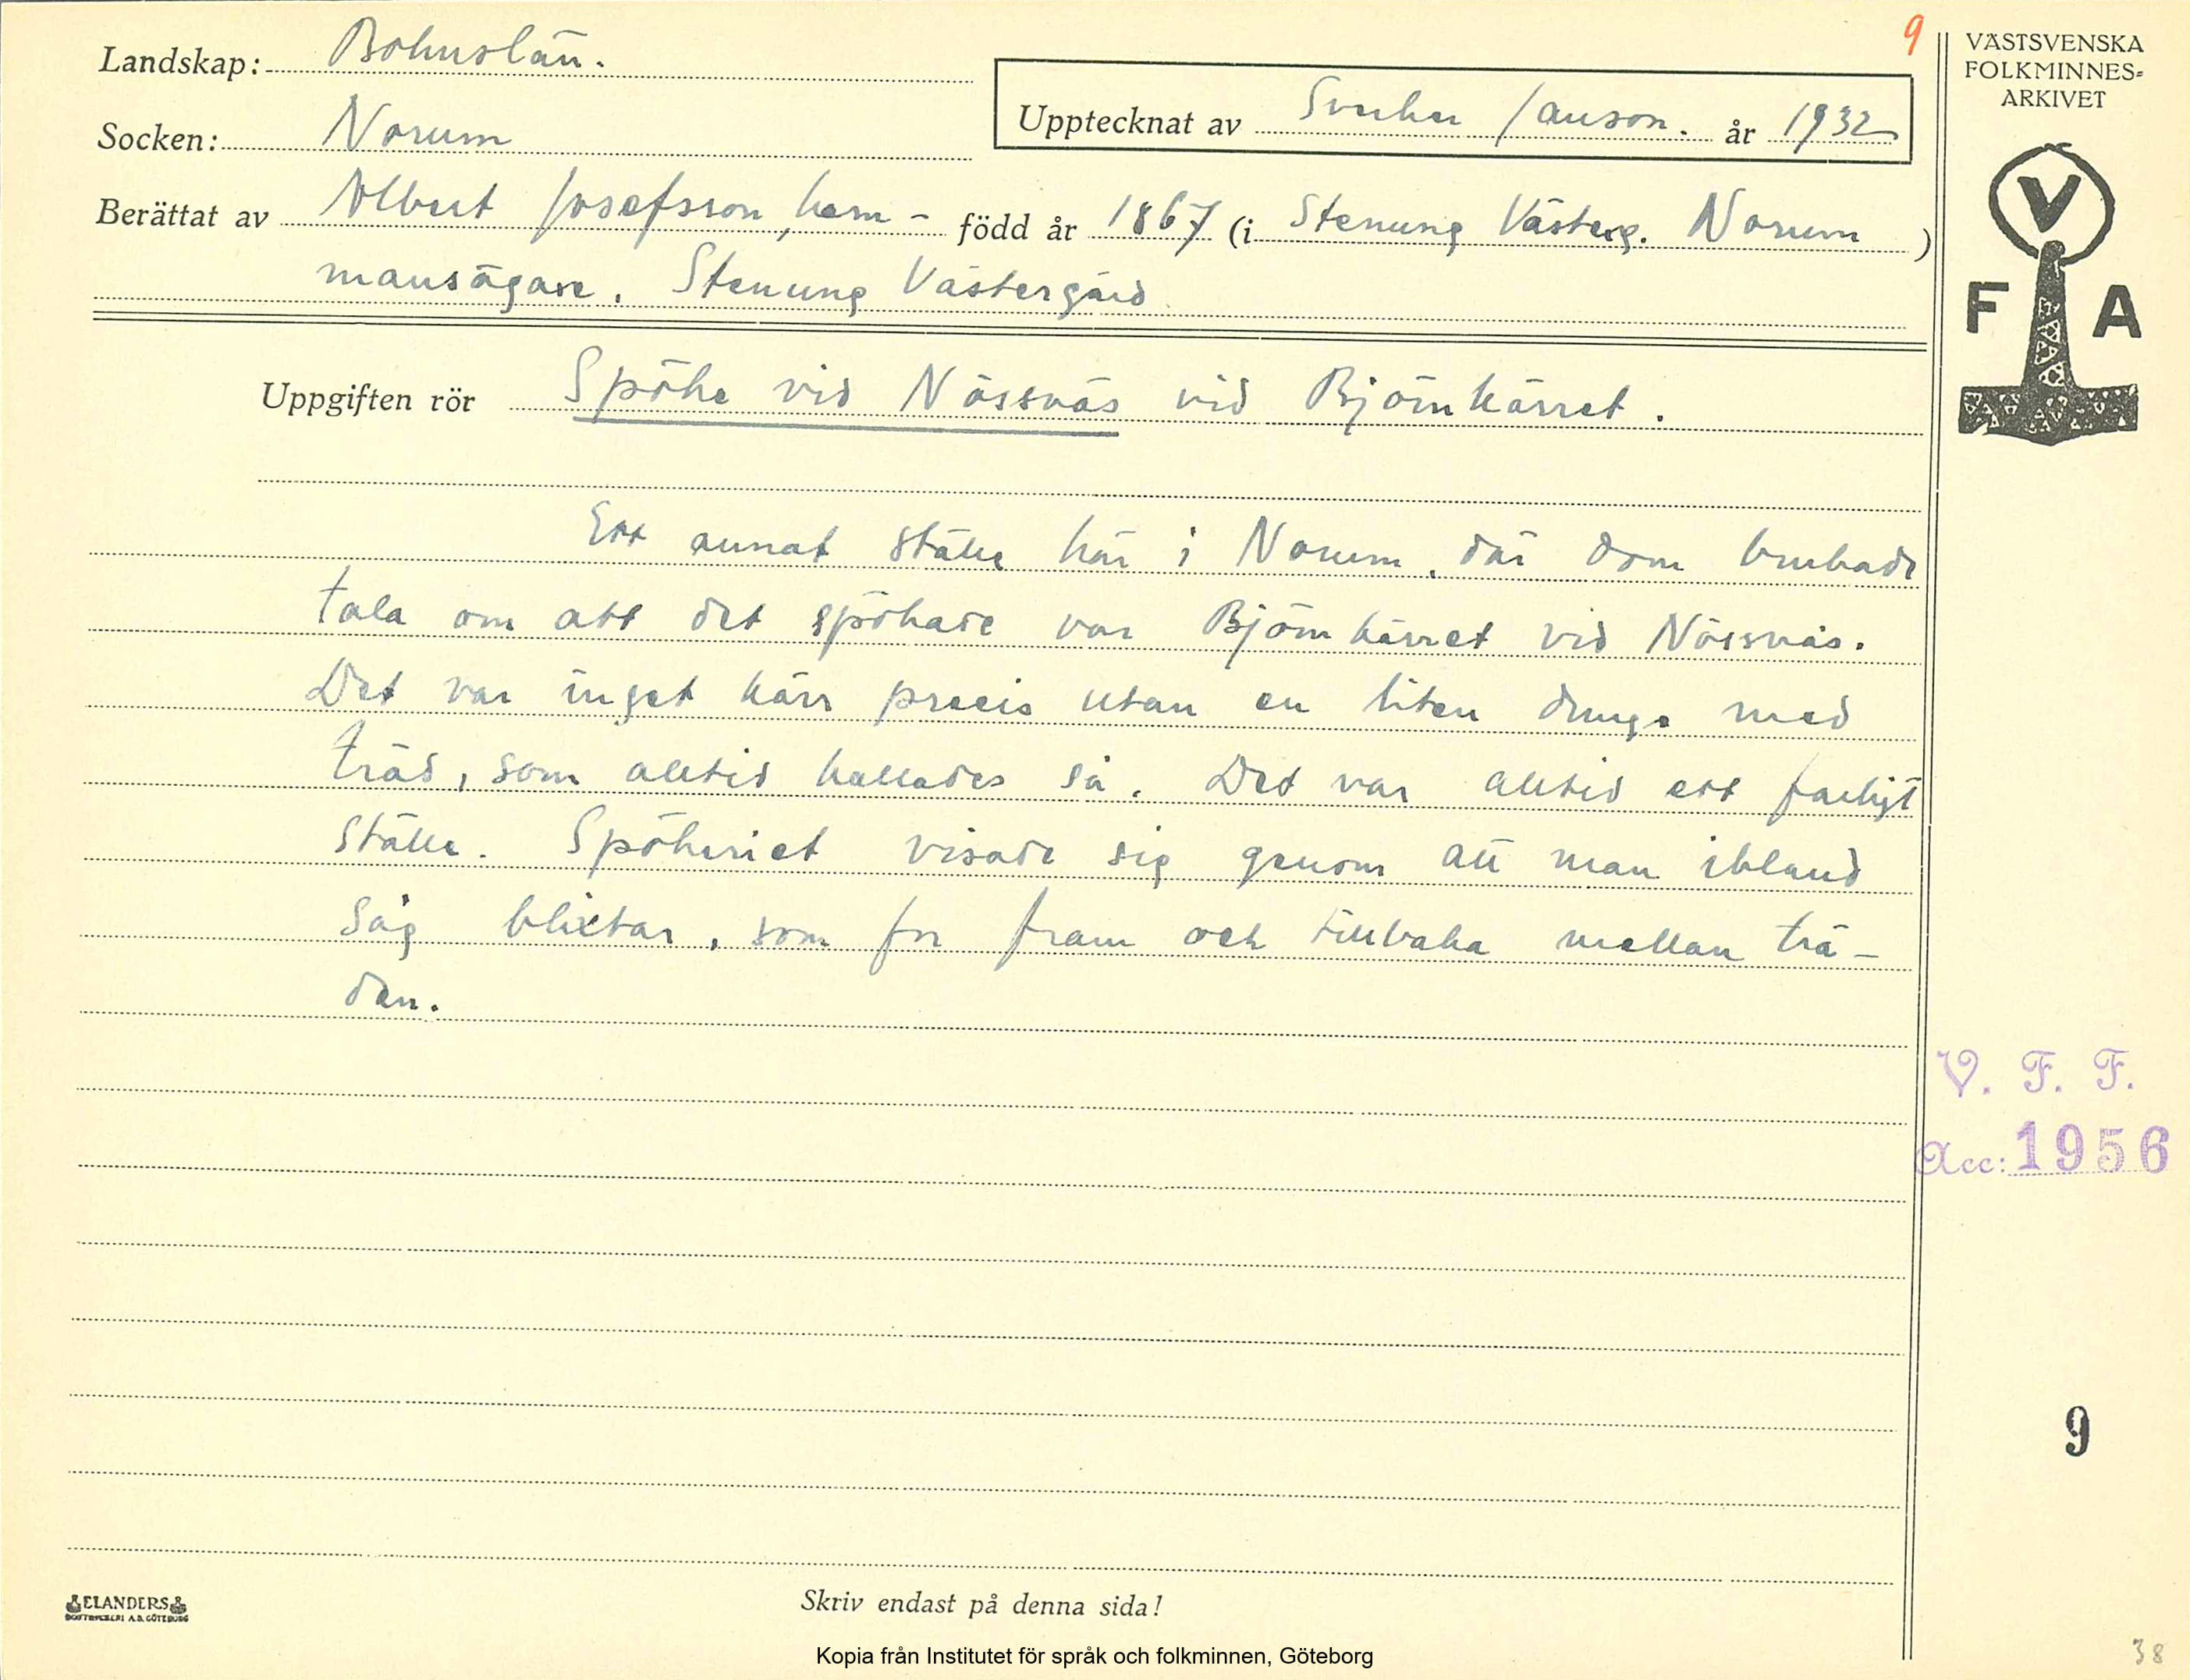 9
VÄSTSVENSKA
FOLKMINNES-
ARKIVET
Landskap: Bohuslän.
Upptecknat av Sverker Janson. år 1932
Socken: Norum
Berättat av Albert Josefsson, hem- född år 1867 (i Stenung Västerg. Norum)
mansägare. Stenung Västergård
V
F A
Uppgiften rör Spöke vid Nössnäs vid Björnkärret.
Ett annat ställe här i Norum, där dom brukade
tala om att det spökade var Björnkärret vid Nössnäs.
Det var inget kärr precis utan en liten dunge med
träd, som alltid kallades så. Det var alltid ett farligt
ställe. Spökeriet visade sig genom att man ibland
såg blixtar, som for fram och tillbaka mellan trä-
den.
V. F. F.
Acc: 1956
9
ELANDERS
BOKTRYCKERI A.B. GÖTEBORG
Skriv endast på denna sida!
Kopia från Institutet för språk och folkminnen, Göteborg
38